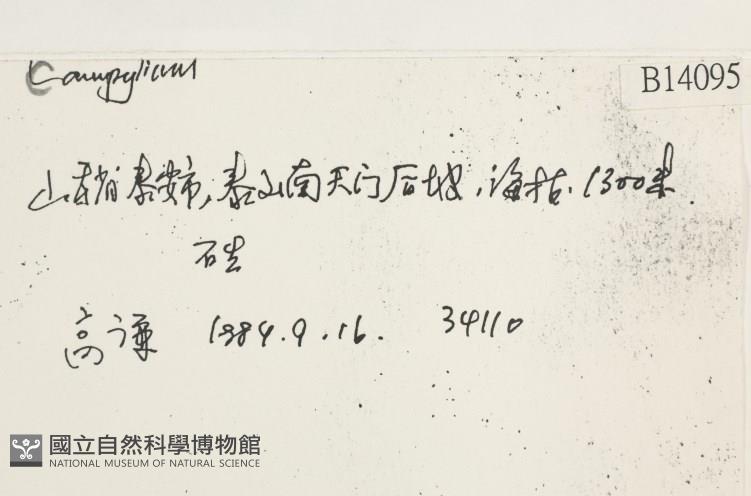 Campylium
B14095
山东省泰安市,泰山南天门后坡,海拔1300米.
石生
高谦 1984.9.16. 34110
國立自然科學博物館
NATIONAL MUSEUM OF NATURAL SCIENCE